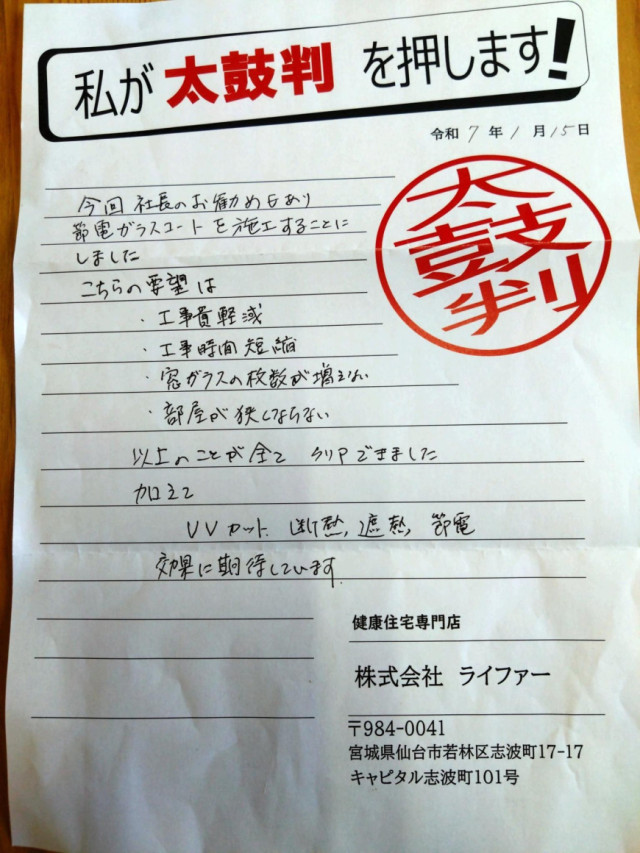 私が太鼓判を押します!
令和 7 年 1 月 15 日
太鼓判
今回 社長のお勧めもあり
節電ガラスコートを施工することに
しました
こちらの要望は
・工事費軽減
・工事時間短縮
・窓ガラスの枚数が増えない
・部屋が狭くならない
以上のことが全て クリアできました
加えて
UVカット、断熱、遮熱、節電
効果に期待しています。
健康住宅専門店
株式会社 ライファー
〒984-0041
宮城県仙台市若林区志波町17-17
キャピタル志波町101号